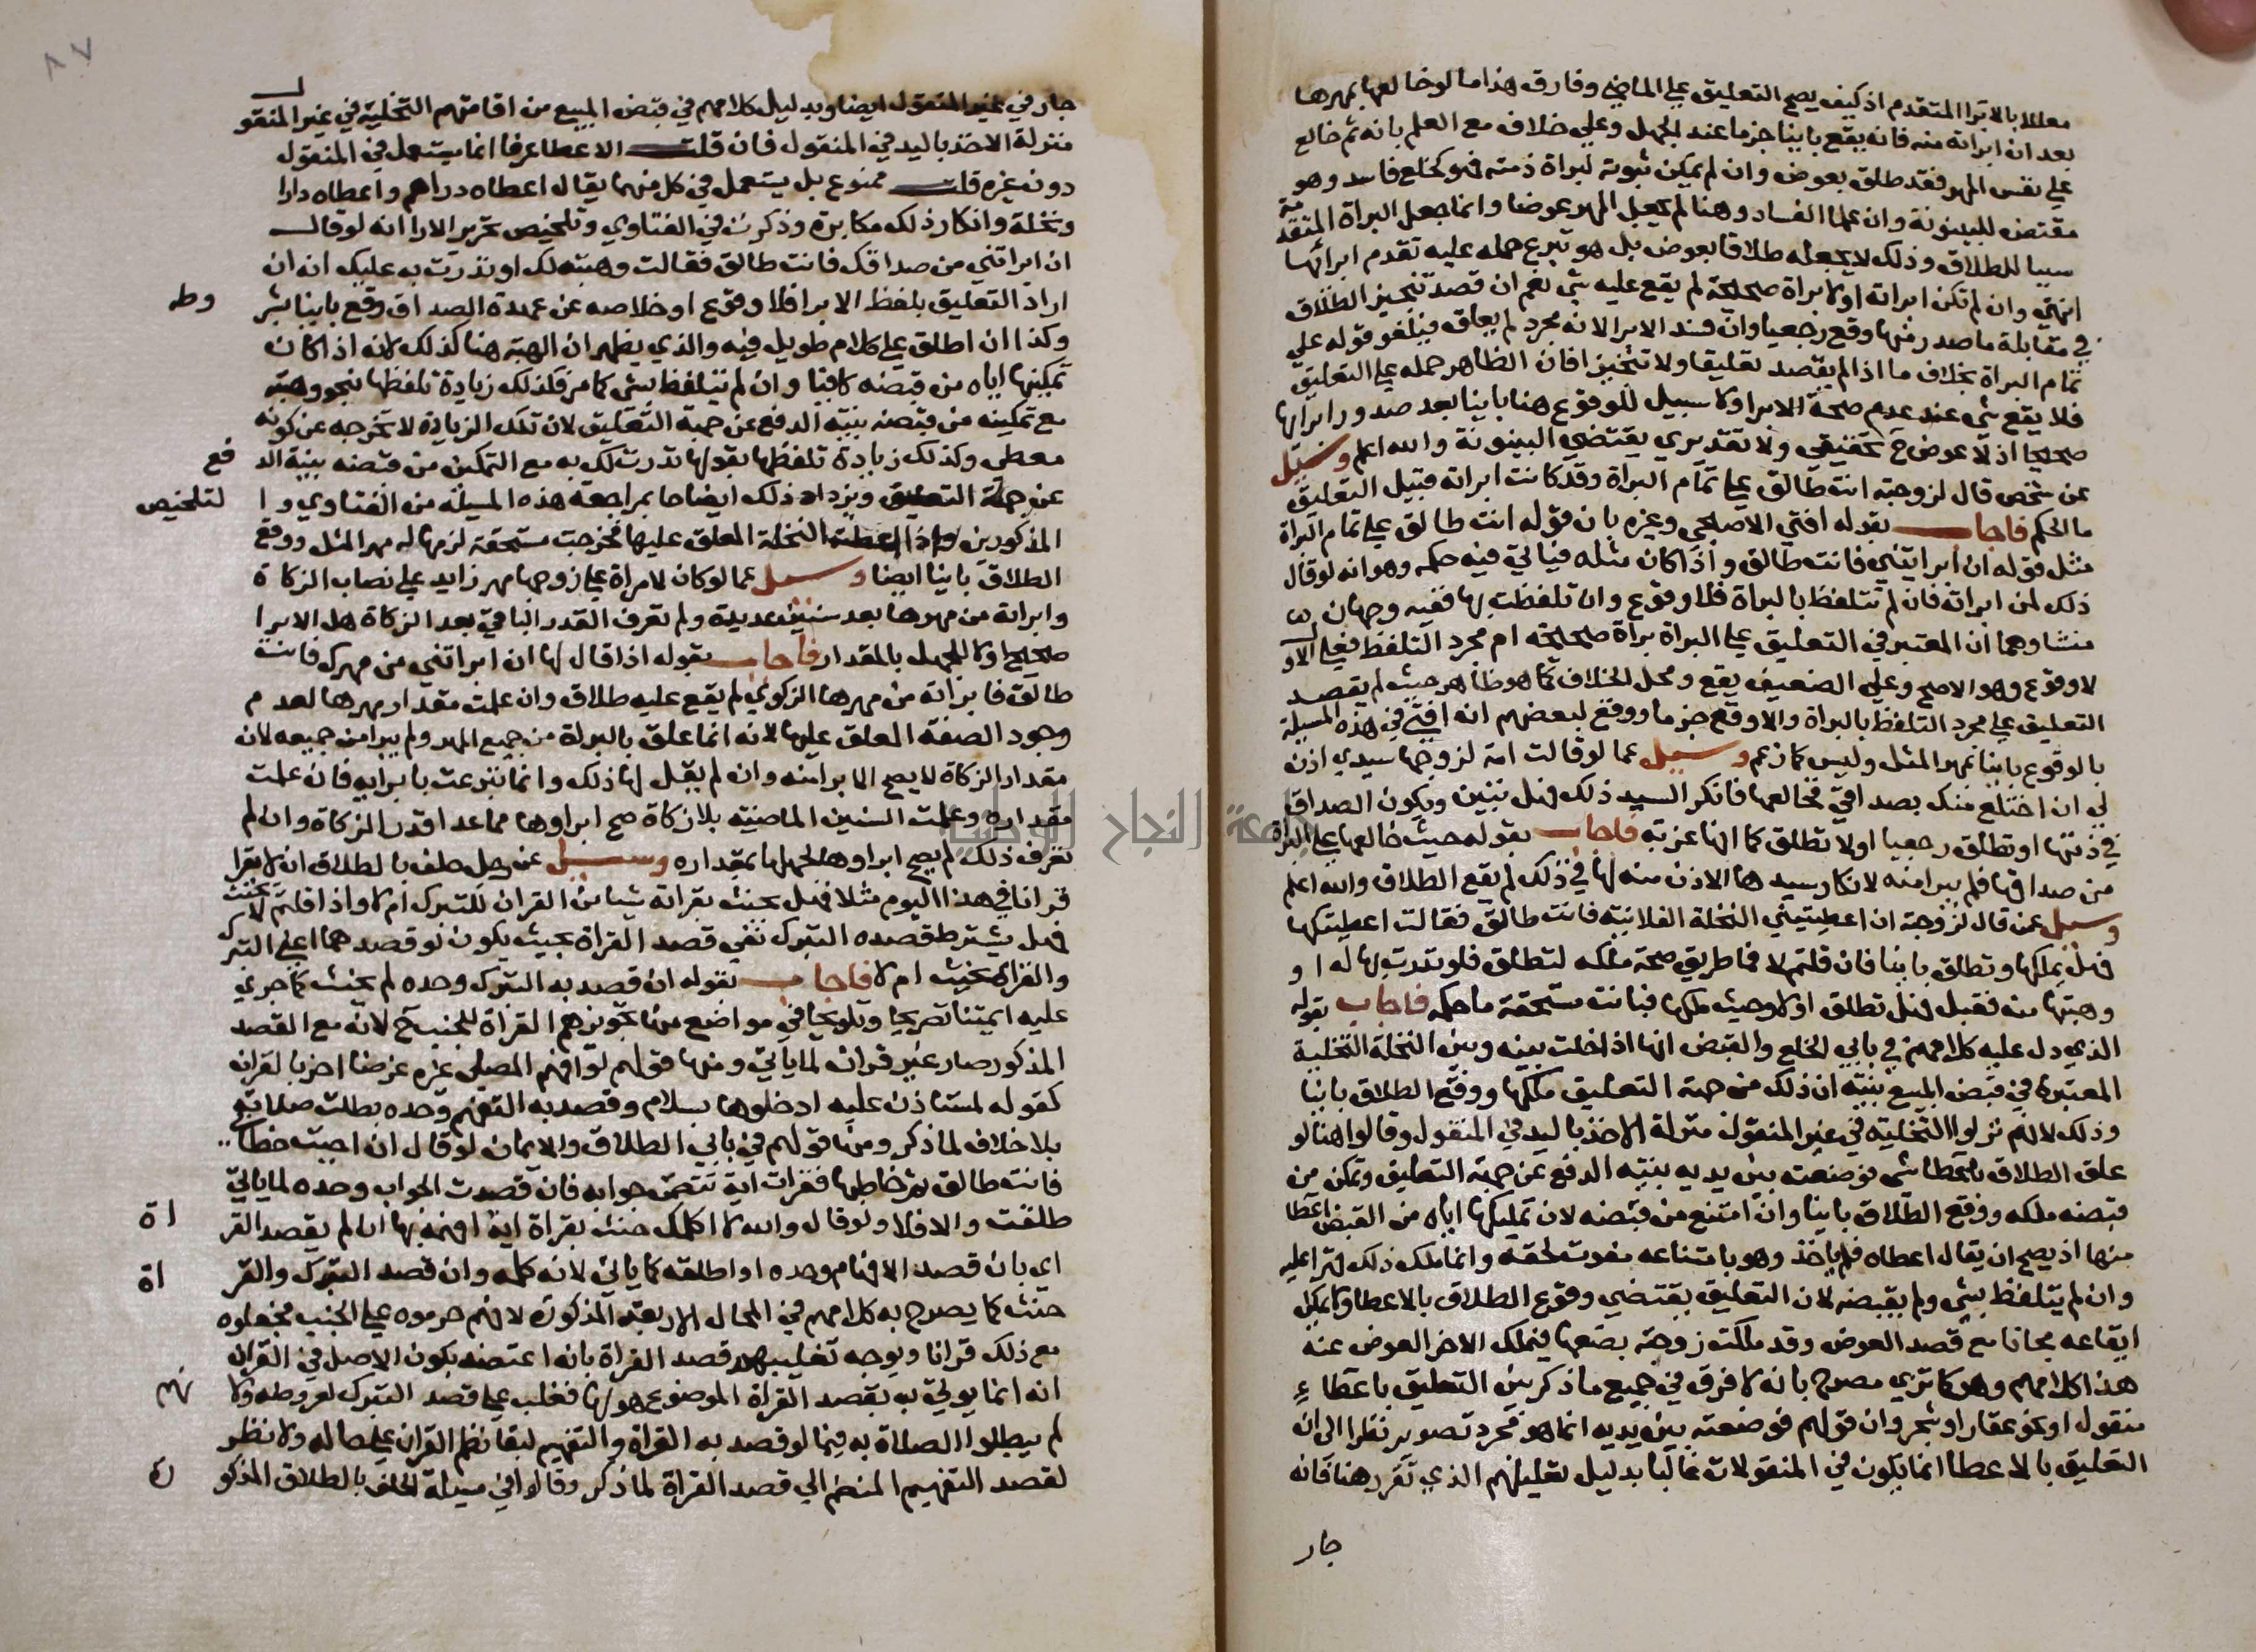 معللا بالابرا المتقدم اذ كيف يصح التعليق علي الماضي وفارق هذا ما لو خالعها بمهرها
بعد ان ابراته منه فانه يقع باينا جزما عند الجهل وعلي خلاف مع العلم بانه ثم خالع
علي نفس المهر فقد طلق بعوض وان لم يمكن ثبوته لبراة ذمته فهو كخلع فاسد وهو
مقتض للبينونة وان علما الفساد وهنا لم يجعل المهر عوضا وانما جعل البراة المتقدمة
سببا للطلاق وذلك لا يجعله طلاقا بعوض بل هو تبرع حمله عليه تقدم ابرائها
انتهي وان لم تكن ابراته اولا براة صحيحة لم يقع عليه شي نعم ان قصد تنجيز الطلاق
في مقابلة ما صدر منها وقع رجعيا وان فسد الابرا لانه مجرد لم يعلق فيلغو قوله علي
تمام البراة بخلاف ما اذا لم يقصد تعليقا ولا تنجيزا فان الظاهر حمله علي التعليق
فلا يقع شي عند عدم صحة الابرا ولا سبيل للوقوع هنا باينا بعد صدور ابرايها
صحيحا اذ لا عوض ح تحقيقي ولا تقديري يقتضي البينونة والله اعلم وسئل
عن شخص قال لزوجته انت طالق علي تمام البراة وقد كانت ابراته قبيل التعليق
ما الحكم فاجاب بقوله افتي الاصبحي وغيره بان قوله انت طالق علي تمام البراة
مثل قوله ان ابراتيني فانت طالق واذا كان مثله فياتي فيه حكمه وهو انه لو قال
ذلك لمن ابراته فان لم تتلفظ بالبراة فلا وقوع وان تلفظت بها ففيه وجهان
منشاوهما ان المعتبر في التعليق علي البراة براة صحيحة ام مجرد التلفظ فعلي الاول
لا وقوع وهو الاصح وعلي الضعيف يقع ومحل الخلاف كما هو ظاهر حيث لم يقصد
التعليق علي مجرد التلفظ بالبراة والا وقع جزما ووقع لبعضهم انه افتي في هذه المسيلة
بالوقوع باينا بمهر المثل وليس كما زعم وسيل عما لو قالت امة لزوجها سيدي اذن
لي ان اختلع منك بصداقي فخالعها فانكر السيد ذلك فهل تبين ويكون الصداق
في ذمتها او تطلق رجعيا او لا تطلق كما انها غرته فاجاب بقوله حيث خالعها علي البراة
من صداقها فلم يبرا منه لانكار سيدها الاذن منه لها في ذلك لم يقع الطلاق والله اعلم
وسيل عمن قال لزوجته ان اعطيتيني النخلة الفلانية فانت طالق فقالت اعطيتكها
فهل يملكها وتطلق باينا فان قلتم لا فما طريق صحة ملكه لتطلق فلو نذرت بها له او
وهبتها منه فقبل فهل تطلق او لا وحيث ملكها فبانت مستحقة ما حكمه فاجاب بقوله
الذي دل عليه كلامهم في بابي الخلع والقبض انها اذا خلت بينه وبين النخلة التخلية
المعتبرة في قبض المبيع بنية ان ذلك من جهة التعليق ملكها ووقع الطلاق باينا
وذلك لانهم نزلوا التخلية في غير المنقول منزلة الاخذ باليد في المنقول وقالوا هنا لو
علق الطلاق باعطا شي فوضعته بين يديه بنية الدفع عن جهة التعليق وتمكن من
قبضه ملكه ووقع الطلاق باينا وان امتنع من قبضه لان تمكينها اياه من القبض اعطا
منها اذ يصح ان يقال اعطاه فلم ياخذ وهو بامتناعه مفوت لحقه وانما ملك ذلك قهرا عليه
وان لم يتلفظ بشي ولم يقبضه لان التعليق يقتضي وقوع الطلاق بالاعطا ولا يمكن
ايقاعه مجانا مع قصد العوض وقد ملكت زوجته بضعها فيملك الاخر العوض عنه
هذا كلامهم وهو كما تري مصرح بانه لا فرق في جميع ما ذكر بين التعليق باعطاء
منقول او نحو عقار او شجر وان قولهم فوضعته بين يديه انما هو مجرد تصوير نظرا الي ان
التعليق بالاعطا انما يكون في المنقولات غالبا بدليل تعليلهم الذي تقرر هنا فانه
جار
٨٧
جار في غير المنقول ايضا وبدليل كلامهم في قبض المبيع من اقامتهم التخلية في غير المنقول
منزلة الاخذ باليد في المنقول فان قلت الاعطا عرفا انما يستعمل في المنقول
دون غيره قلت ممنوع بل يستعمل في كل منهما يقال اعطاه دراهم واعطاه دارا
ونخلة وانكار ذلك مكابرة وذكرت في الفتاوي وتلخيص تحرير الارا انه لو قال
ان ابراتني من صداقك فانت طالق فقالت وهبته لك او نذرت به عليك انه ان
اراد التعليق بلفظ الابرا فلا وقوع او خلاصه عن عهدة الصداق وقع باينا بشروطه
وكذا ان اطلق علي كلام طويل فيه والذي يظهر ان الهبة هنا كذلك لانه اذا كان
تمكينها اياه من قبضه كافيا وان لم تتلفظ بشي كما مر فكذلك زيادة تلفظها بنحو وهبته
مع تمكينه من قبضه بنية الدفع عن جهة التعليق لان تلك الزيادة لا تخرجه عن كونه
معطي وكذلك زيادة تلفظها بقولها نذرت لك به مع التمكين من قبضه بنية الدفع
عن جهة التعليق ويزداد ذلك ايضاحا بمراجعة هذه المسيلة من الفتاوي والتلخيص
المذكورين واذا اعطت النخلة المعلق عليها فخرجت مستحقة لزمها له مهر المثل ووقع
الطلاق باينا ايضا وسيل عما لو كان لامراة علي زوجها مهر زايد علي نصاب الزكاة
وابراته من مهرها بعد سنين عديدة ولم تعرف القدر الباقي بعد الزكاة هل الابرا
صحيح او لا للجهل بالمقدار فاجاب بقوله اذا قال لها ان ابراتني من مهرك فانت
طالق فابراته من مهرها الزكوي لم يقع عليه طلاق وان علمت مقدار مهرها لعدم
وجود الصفة المعلق عليها لانه انما علق بالبراة من جميع المهر ولم يبرا من جميعه لان
مقدار الزكاة لا يصح الابرا منه وان لم يقل لها ذلك وانما تبرعت بابرايه فان علمت
مقداره وعلمت السنين الماضيه بلا زكاة صح ابراوها مما عدا قدر الزكاة وان لم
تعرف ذلك لم يصح ابراوها لجهلها بمقداره وسيل عن رجل حلف بالطلاق ان لا يقرا
قرانا في هذا اليوم مثلا فهل يحنث بقراته شيا من القران للتبرك ام لا واذا قلتم لا يحنث
فهل يشترط قصده التبرك نفي قصد القراة بحيث يكون لو قصدهما اعني التبرك
والقراة يحنث ام لا فاجاب بقوله ان قصد به التبرك وحده لم يحنث كما جري
عليه ايمتنا تصريحا وتلويحا في مواضع منها تجويزهم القراة للجنب ح لانه مع القصد
المذكور صار غير قران لما ياتي ومنها قولهم لو افهم المصلي غيره غرضا اخر بالقران
كقوله لمستاذن عليه ادخلوها بسلام وقصد به التفهيم وحده بطلت صلاته
بلا خلاف لما ذكر ومنها قولهم في بابي الطلاق والايمان لو قال ان اجبت خطابي
فانت طالق ثم خاطبها فقرات اية تتضمن جوابه فان قصدت الجواب وحده لما ياتي
طلقت والا فلا ولو قال والله لا اكلمك حنث بقراة اية افهمه بها ان لم يقصد القراة
اي بان قصد الافهام وحده او اطلقه كما ياتي لانه كلمه وان قصد التبرك والقراة
حنث كما يصرح به كلامهم في المحال الاربعة المذكورة لانهم حرموه علي الجنب فجعلوه
مع ذلك قرانا ويوجه تغليبهم قصد القراة بانه اعتضد بكون الاصل في القران
انه انما يوتي به بقصد القراة الموضوع هو لها فغلب علي قصد التبرك لعروضه ولانهم
لم يبطلوا الصلاة به فيما لو قصد به القراة والتفهيم لبقا نظم القران علي حاله ولا نظر
لقصد التفهيم المنضم الي قصد القراة لما ذكر وقالوا في مسيلة الحلف بالطلاق المذكورة